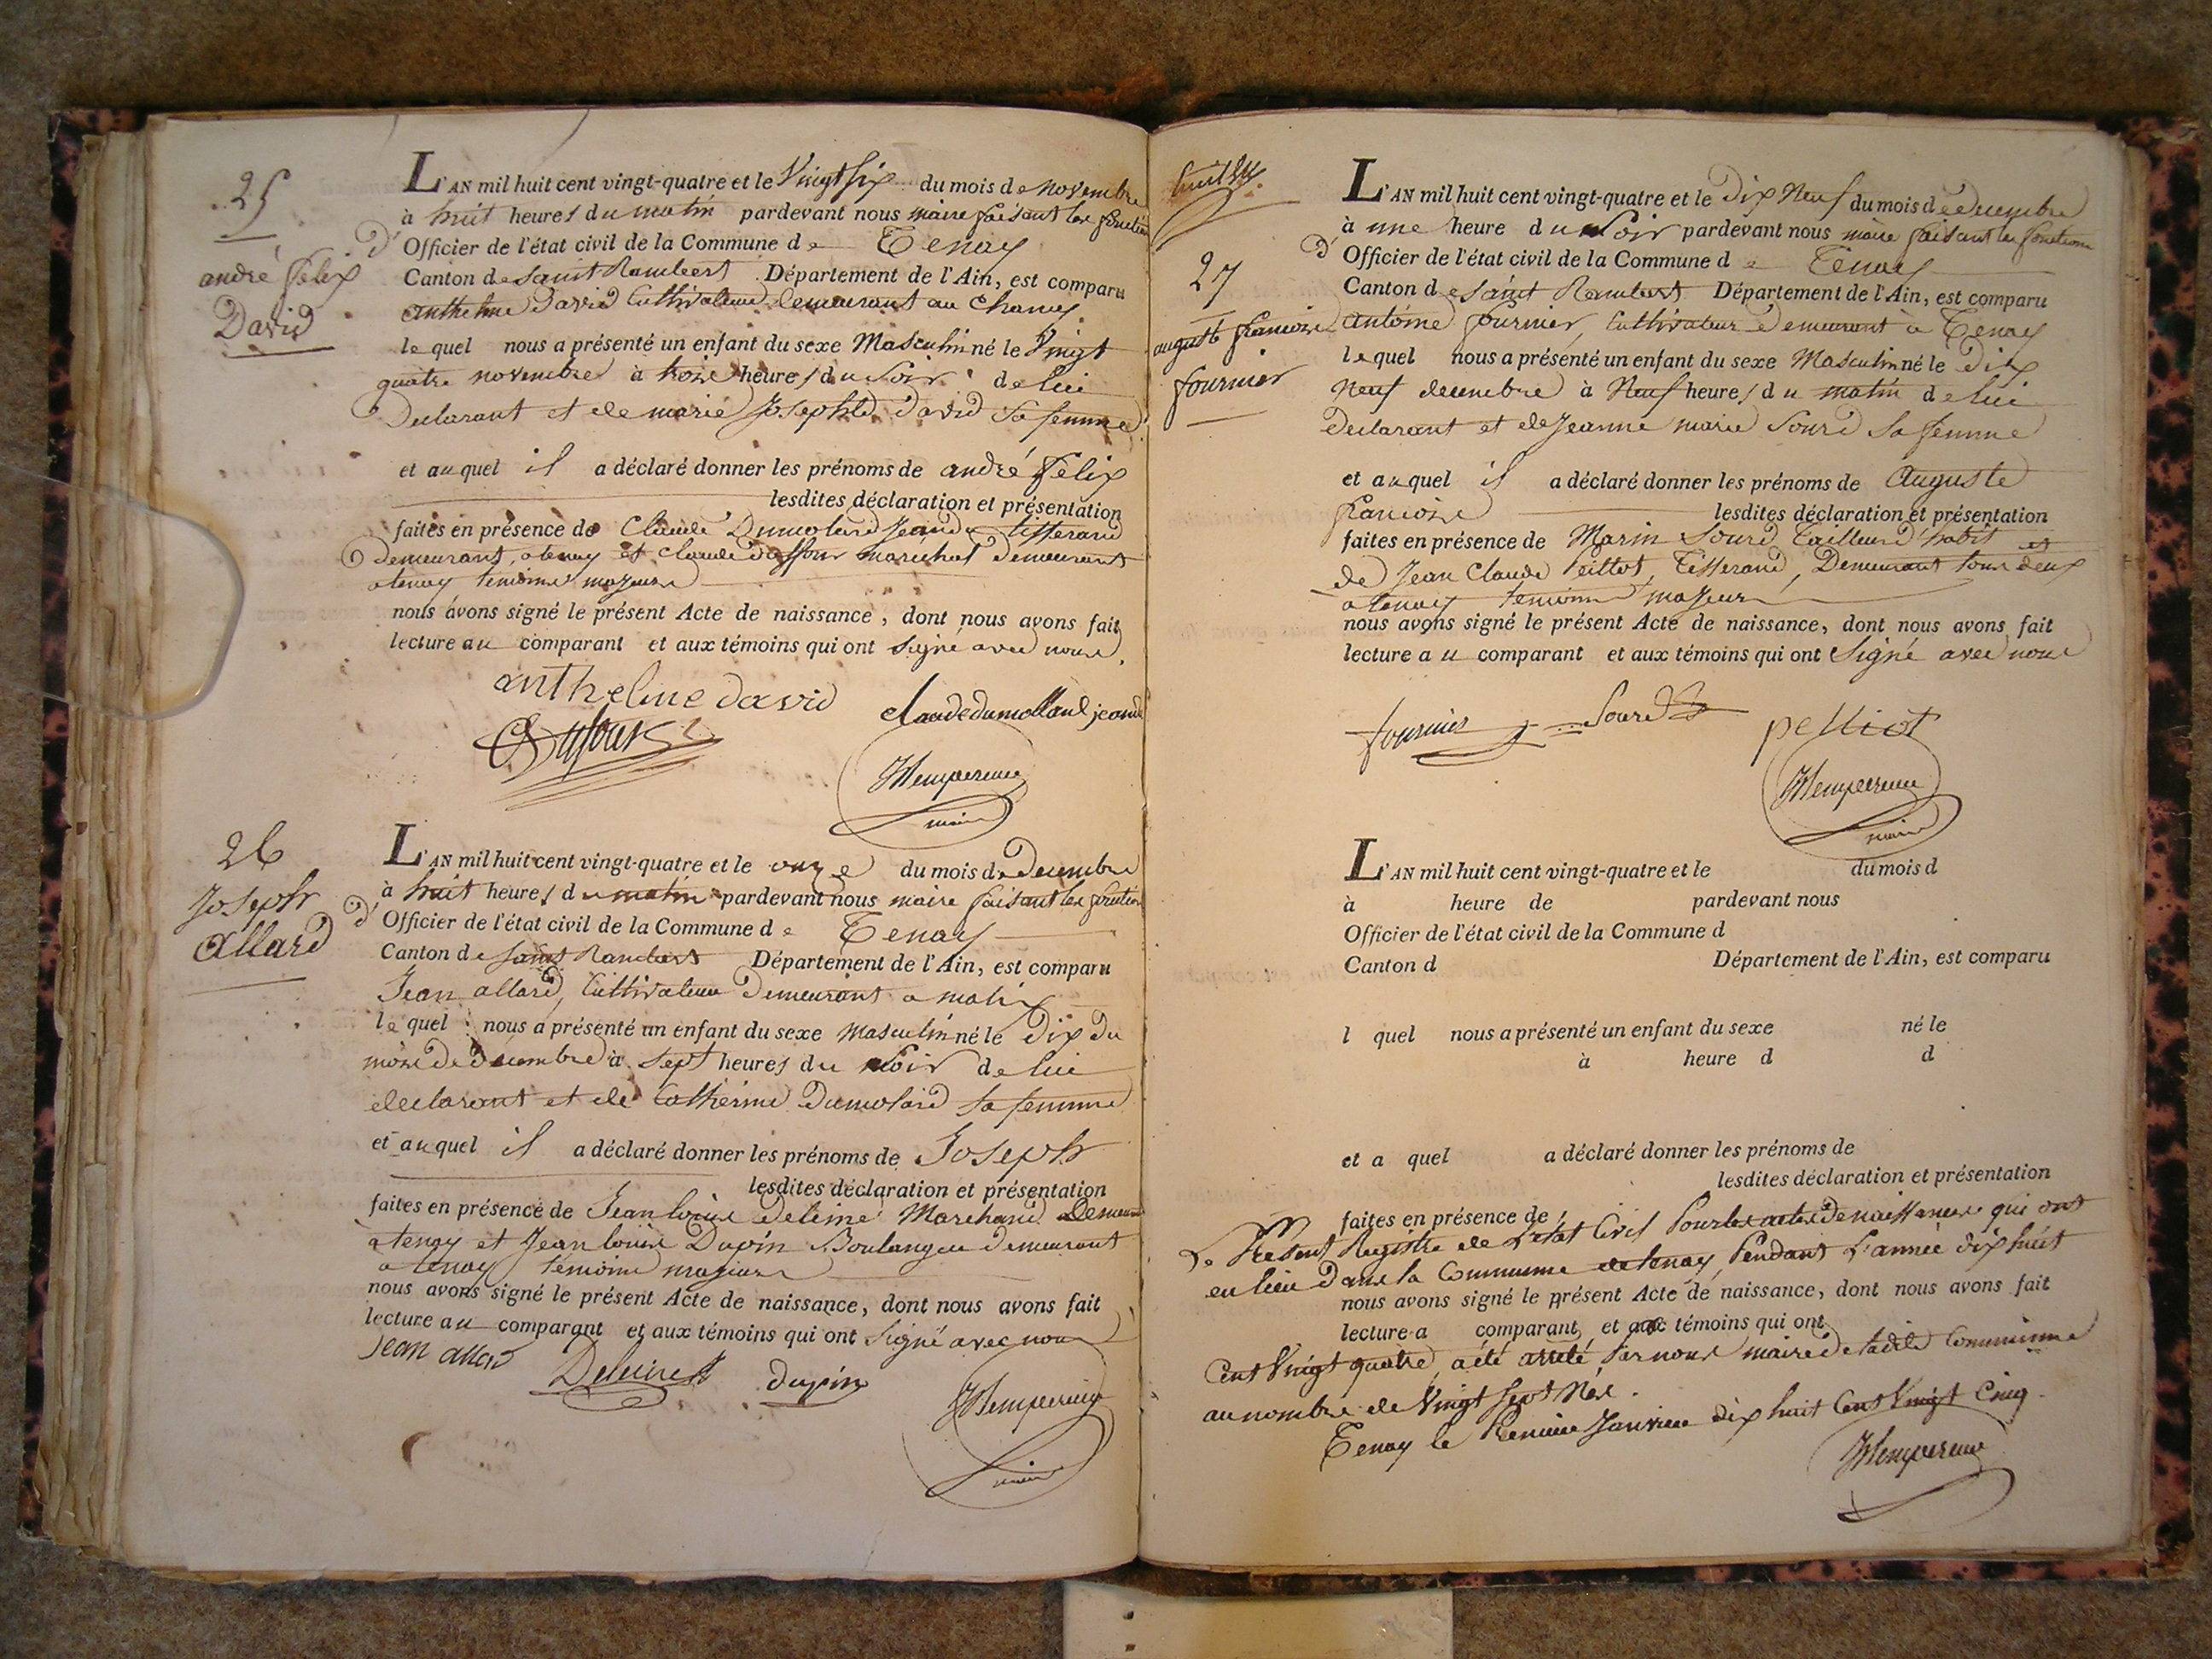 25
andré felix
David
L'AN mil huit cent vingt-quatre et le Vingt six du mois de novembre
à huit heures du matin pardevant nous maire faisant les fonction
d' Officier de l'état civil de la Commune de Tenay
Canton de saint Rambert Département de l'Ain, est comparu
anthelme David Cultivateur demeurant au Chaney
lequel nous a présenté un enfant du sexe Masculin né le Vingt
quatre novembre à trois heures du soir de lui
Declarant et de marie Josephte David sa femme
et auquel il a déclaré donner les prénoms de andré felix
lesdites déclaration et présentation
faites en présence de Claude Dumolard Jeande tisserand
Demeurant a tenay et claude dufour marechal demeurant
a tenay temoins majeurs
nous avons signé le présent Acte de naissance, dont nous avons fait
lecture au comparant et aux témoins qui ont signé avec nous.
anthelme david
claude dumollard jeande
Dufour
maire
26
Joseph
allard
L'AN mil huit cent vingt-quatre et le onze du mois de Decembre
à huit heures du matin pardevant nous maire faisant les fonction
d' Officier de l'état civil de la Commune de Tenay
Canton de saint Rambert Département de l'Ain, est comparu
Jean allard, Cultivateur Demeurant a malix
lequel nous a présenté un enfant du sexe masculin né le Dix du
mois de decembre à sept heures du soir de lui
declarant et de Catherine Dumolard sa femme
et auquel il a déclaré donner les prénoms de Joseph
lesdites déclaration et présentation
faites en présence de Jean louis Marchand Demeurant
a tenay et Jean louis Dupin Boulanger demeurant
a tenay temoins majeurs
nous avons signé le présent Acte de naissance, dont nous avons fait
lecture au comparant et aux témoins qui ont signé avec nous
Jean allard
dupin
maire
27
auguste francois
fournier
L'AN mil huit cent vingt-quatre et le Dix Neuf du mois de decembre
à une heure du soir pardevant nous maire faisant les fonctions
d' Officier de l'état civil de la Commune de Tenay
Canton de saint Rambert Département de l'Ain, est comparu
antoine fournier, Cultivateur demeurant à Tenay
lequel nous a présenté un enfant du sexe Masculin né le Dix
neuf decembre à Neuf heures du matin de lui
declarant et de Jeanne marie Sourd sa femme
et auquel il a déclaré donner les prénoms de Auguste
francois lesdites déclaration et présentation
faites en présence de Marin Sourd Tailleur d'habit et
de Jean Claude Tisserand, Demeurant tous deux
a tenay temoins majeurs
nous avons signé le présent Acte de naissance, dont nous avons fait
lecture au comparant et aux témoins qui ont signé avec nous
fournier
Sourd
pelliot
maire
L'AN mil huit cent vingt-quatre et le du mois d
à heure de pardevant nous
Officier de l'état civil de la Commune d
Canton d Département de l'Ain, est comparu
l quel nous a présenté un enfant du sexe né le
à heure d d
et a quel a déclaré donner les prénoms de
lesdites déclaration et présentation
faites en présence de
Le Présent Registre de L'état Civil Pour les actes de naissances qui ont
eu lieu dans la Commune de tenay, Pendant L'année dix huit
nous avons signé le présent Acte de naissance, dont nous avons fait
lecture a comparant et aux témoins qui ont
Cent Vingt quatre, a été arreté Par nous maire de ladite Commune
au nombre de Vingt sept Nés.
Tenay le Premier Janvier dix huit Cent Vingt Cinq.